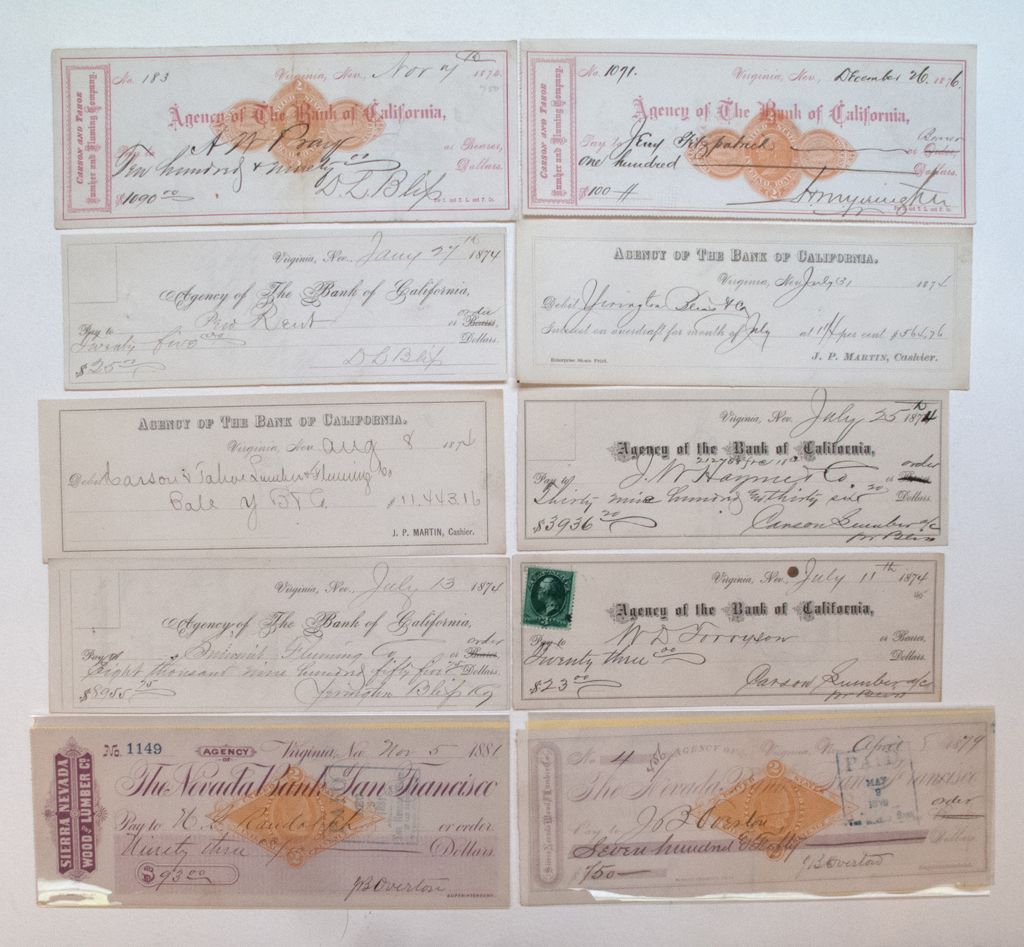 CARSON AND TAHOE
Lumber and Fluming Company.
No. 183 Virginia, Nev. Nov 1874.
Agency of The Bank of California,
Pay to or Bearer,
Ten hundred & ninety 00 Dollars.
$1090 00 D L Bliss
CARSON AND TAHOE
Lumber and Fluming Company.
No. 1091. Virginia, Nev., December 26. 1876.
Agency of The Bank of California,
Pay to Jerry Fitzpatrick Bearer
or Order,
one hundred Dollars.
$100
Virginia, Nev. Jany 27th 1874
Agency of The Bank of California,
Pay to Rent order
or Bearer,
Twenty five 00 Dollars.
$25 00 D L Bliss
AGENCY OF THE BANK OF CALIFORNIA.
Virginia, Nev. July 31 1874
Debit Yerington Bliss & Co
Interest on overdraft for month of July at 1¼ per cent $564,76
Enterprise Steam Print. J. P. MARTIN, Cashier.
AGENCY OF THE BANK OF CALIFORNIA.
Virginia, Nev. Aug 8 1874
Debit Carson & Tahoe Lumber & Fluming Co
$11,443.16
J. P. MARTIN, Cashier.
Virginia, Nev. July 25th 1874
Agency of the Bank of California,
Pay to J. W. Haynie & Co. order
or Bearer
Thirty nine hundred thirty six 20 Dollars.
$3936 20 Carson Lumber
Virginia, Nev. July 13 1874
Agency of The Bank of California,
Pay to Summit Fluming Co order
or Bearer,
Eight thousand nine hundred fifty five Dollars.
$8955 25 Yerington Bliss & Co
Virginia, Nev. July 11th 1874
Agency of the Bank of California,
Pay to W D Torryson or Bearer,
Twenty three 00 Dollars.
$23 00 Carson Lumber
SIERRA NEVADA
WOOD AND LUMBER Co
No. 1149 AGENCY OF Virginia, Nev. Nov 5 1881
The Nevada Bank of San Francisco
Pay to or order
Ninety three Dollars
$93 00 J B Overton
SUPERINTENDENT.
Sierra Nevada Wood and Lumber Co
No. 4 AGENCY OF Virginia, Nev. April 5 1879
The Nevada Bank of San Francisco
PAID
MAY
Pay to J B Overton order
Seven hundred & fifty Dollars
$750 J B Overton